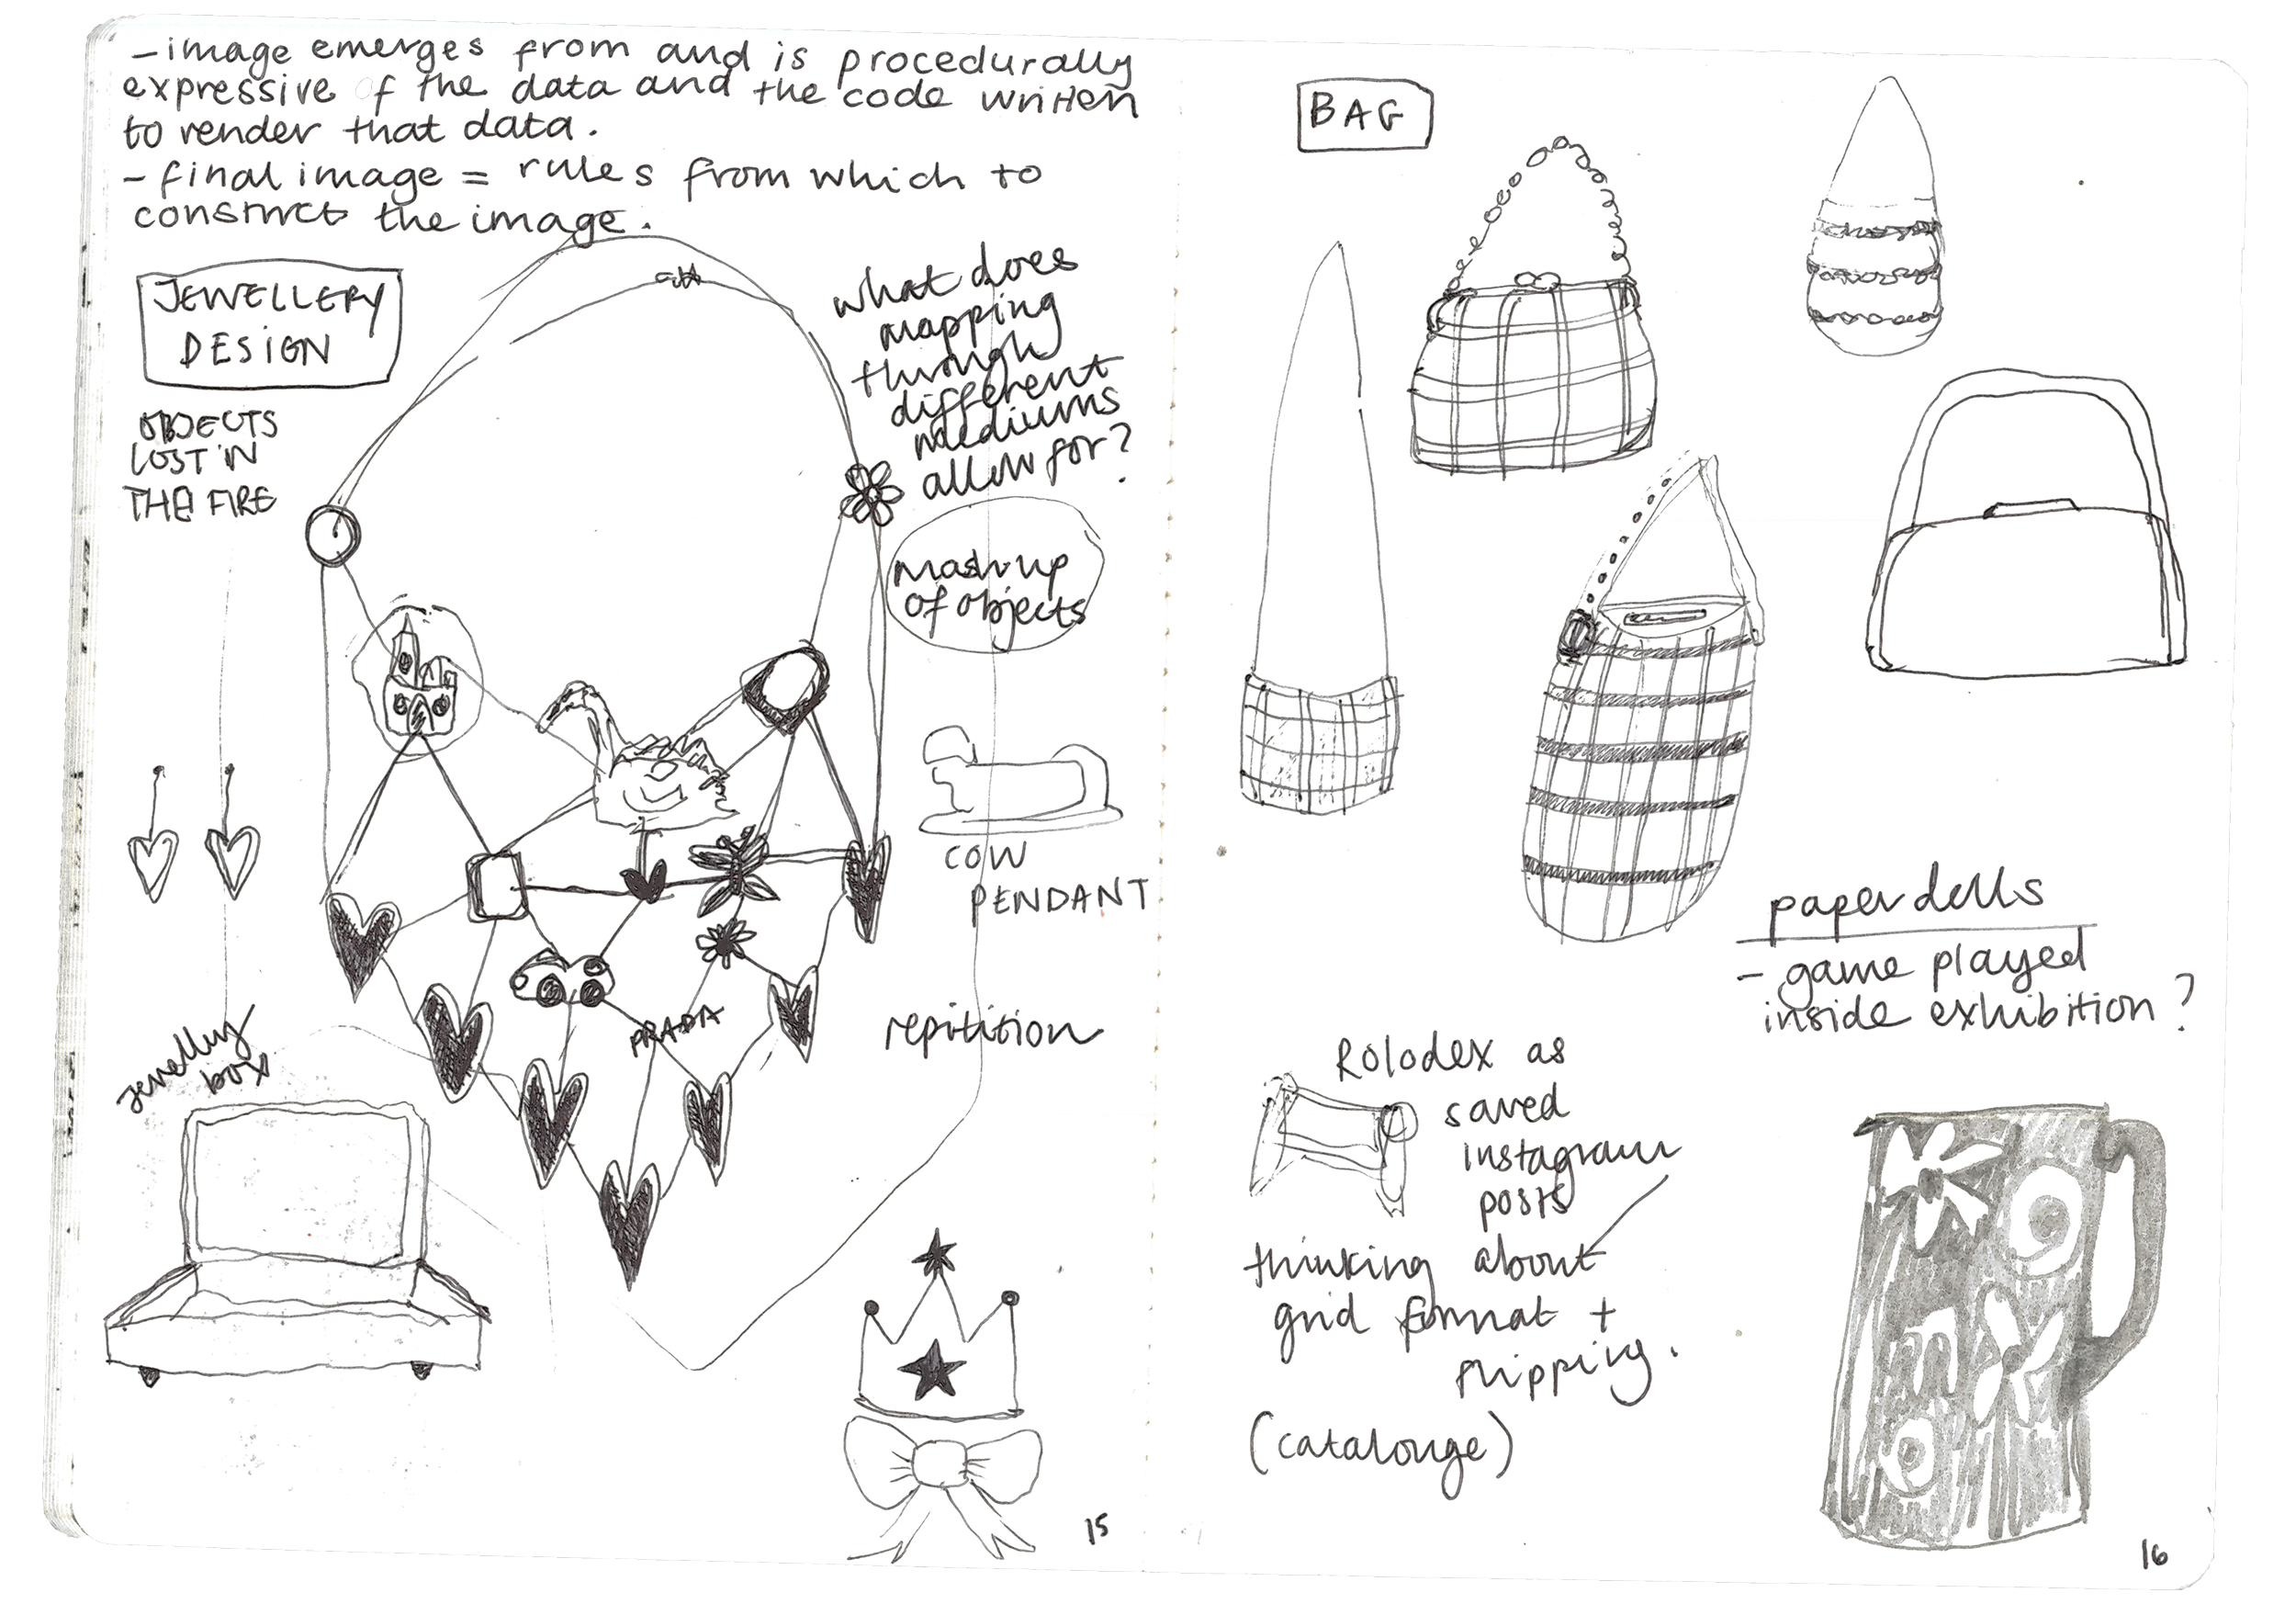 - image emerges from and is procedurally
expressive of the data and the code written
to render that data.
- final image = rules from which to
construct the image.
JEWELLERY
DESIGN
OBJECTS
LOST IN
THE FIRE
what does
mapping
through
different
mediums
allow for?
mash up
of objects
COW
PENDANT
repitition
PRADA
Jewellry
box
15
BAG
paper dolls
- game played
inside exhibition?
Rolodex as
saved
instagram
posts
thinking about
grid format +
flipping.
(catalouge)
16